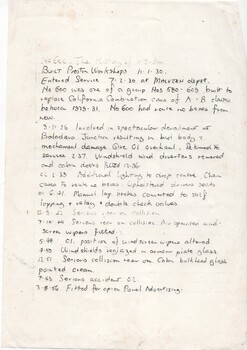 No 600 The History of
BUILT Preston Workshops 11.1.30.
Entered Service 7.2.30 at MALVERN depot.
No 600 was one of a group Nos 580-603 built to
replace California Combination cars of A-B classes
between 1929-31. No 600 had route no boxes from
new.
3.11.36 Involved in spectacular derailment at
Balaclava Junction resulting in bent body &
mechanical damage. Give O1 overhaul. Returned to
service 2.37. Windshield wind diverters removed
and cabin doors fitted 12.36
Additional lighting to drop centre. Chain
to seats no. Upholstered drivers seats
Manual lap brakes converted to self
lapping + relay + double check valves
Serious rear on collision
Serious rear on collision. Air operated wind-
screen wipers fitted.
5.48 O1. position of windscreen wipers altered
Windshields reglazed in armour plate glass
12.51 Serious collision rear on. Cabin bulkhead glass
painted cream.
Serious accident O1
3.8.56 Fitted for option Panel Advertising.